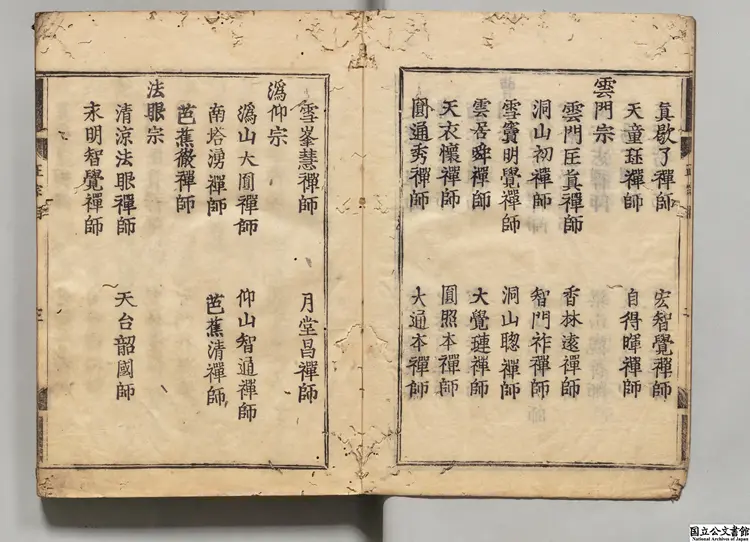 真歇了禪師 宏智覺禪師
天童珏禪師 自得暉禪師
雲門宗
雲門匡真禪師 香林遠禪師
洞山初禪師 智門祚禪師
雪竇明覺禪師 洞山聦禪師
雲居舜禪師 大覺璉禪師
天衣懷禪師 圓照本禪師
圓通秀禪師 大通本禪師
雪峯慧禪師 月堂昌禪師
潙仰宗
潙山大圓禪師 仰山智通禪師
南塔湧禪師
芭蕉徹禪師 芭蕉清禪師
法眼宗
清涼法眼禪師 天台韶國師
永明智覺禪師
国立公文書館
National Archives of Japan